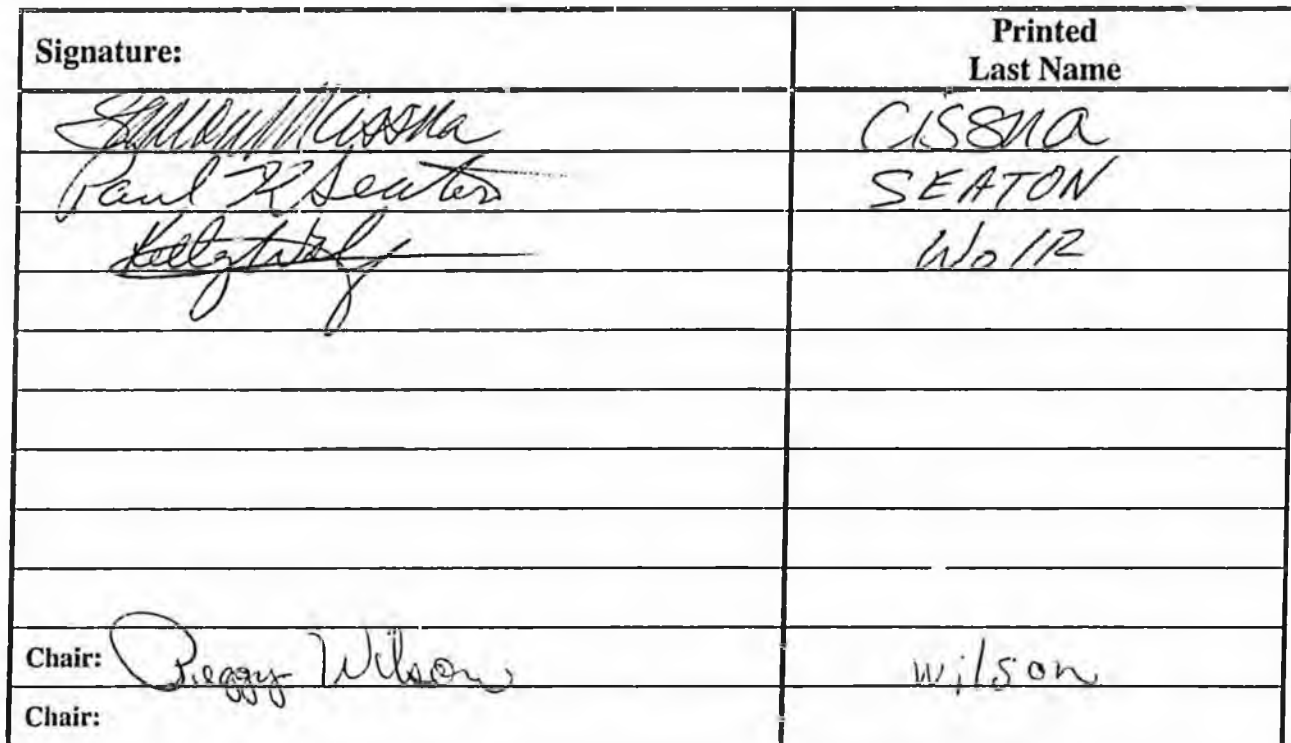 Signature: Printed
Last Name
Cissna CISSNA
Paul K Seaton SEATON
Kelly Wolf
Chair: Peggy Wilson Wilson
Chair: